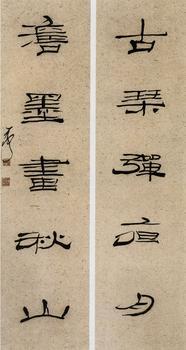 古琴彈夜月
墨畫秋山